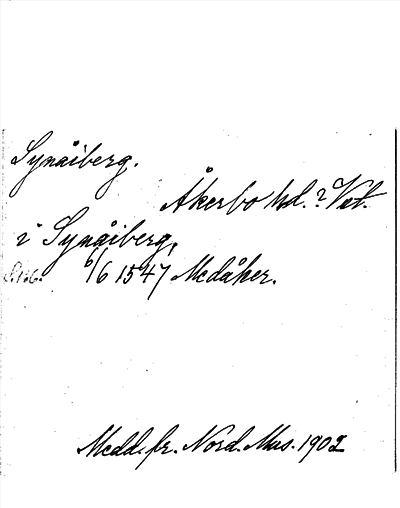 Synåiberg.
Åkerbo hd.? Vstm.
i Synåiberg,
S. 136. 6/6 1547 Medåker.
Medd. fr. Nord. Mus. 1902